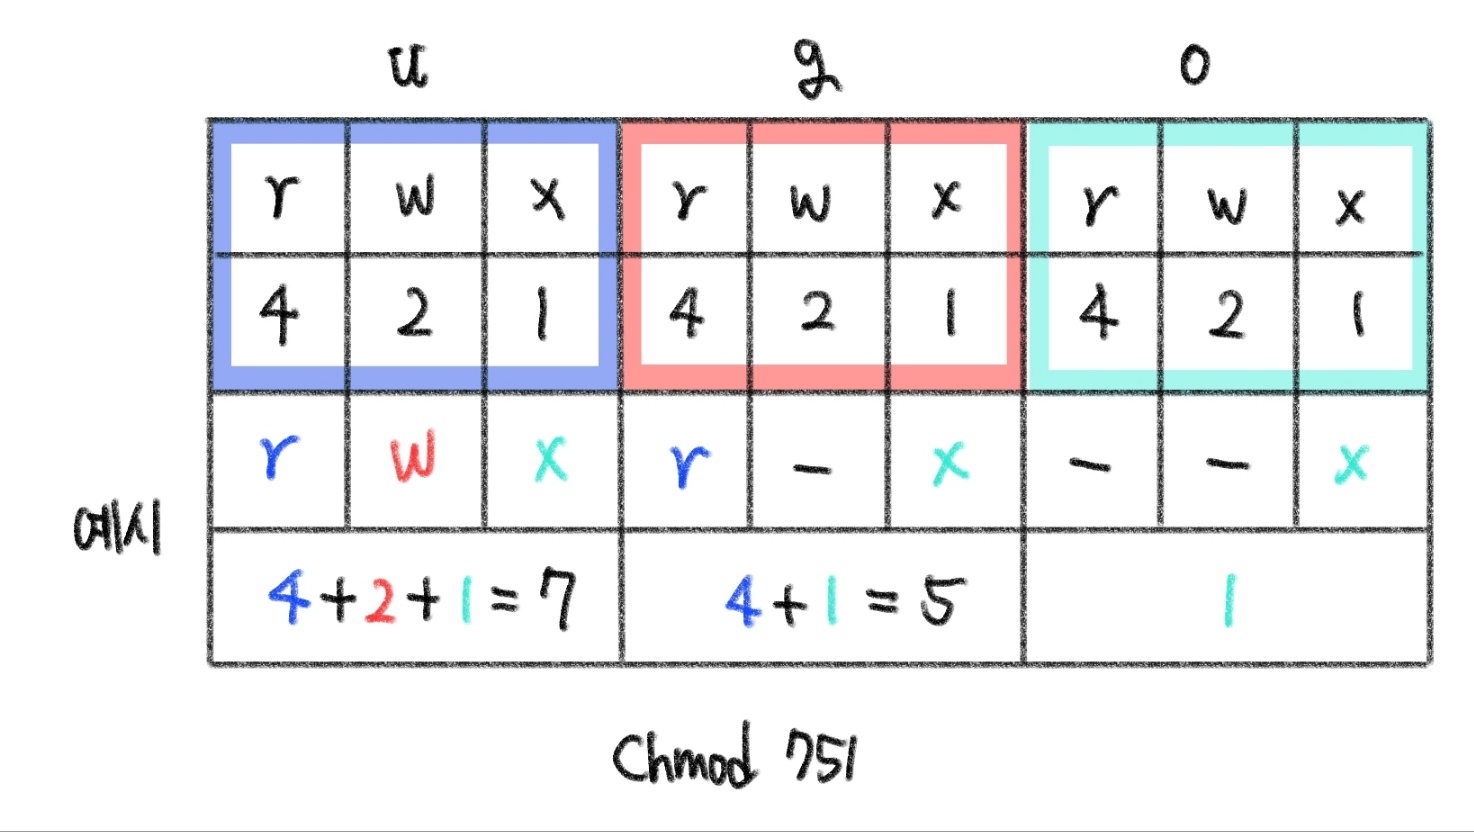 u g o
r w x r w x r w x
4 2 1 4 2 1 4 2 1
r w x r - x - - x
예시
4+2+1=7 4+1=5 1
Chmod 751